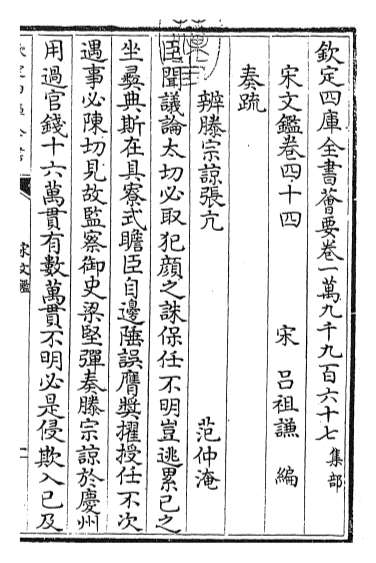 欽定四庫全書薈要卷一萬九千九百六十七 集部
宋文鑑卷四十四
宋 呂祖謙 編
奏疏
辨滕宗諒張亢 范仲淹
臣聞議論太切必取犯顔之誅保任不明豈逃累己之
坐彞典斯在具寮式瞻臣自邊陲誤膺奬擢授任不次
遇事必陳切見故監察御史梁堅彈奏滕宗諒於慶州
用過官錢十六萬貫有數萬貫不明必是侵欺入己及
宋文鑑